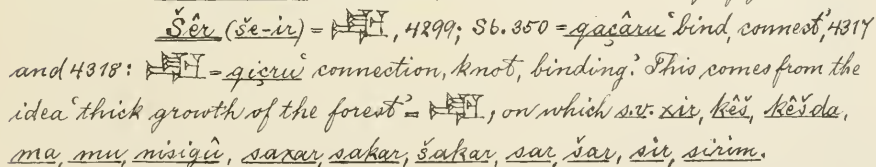 Šêr (še-ir) = 𒊬, 4299; Sb. 350 = qaçâru ‘bind, connect,’ 4317
and 4318: 𒊬 = qiçru ‘connection, knot, binding.’ This comes from the
idea ‘thick growth of the forest’ = 𒊬, on which s.v. xir, kêš, kêšda,
ma, mu, nisigû, saxar, sakar, šakar, sar, šar, sir, sirim.